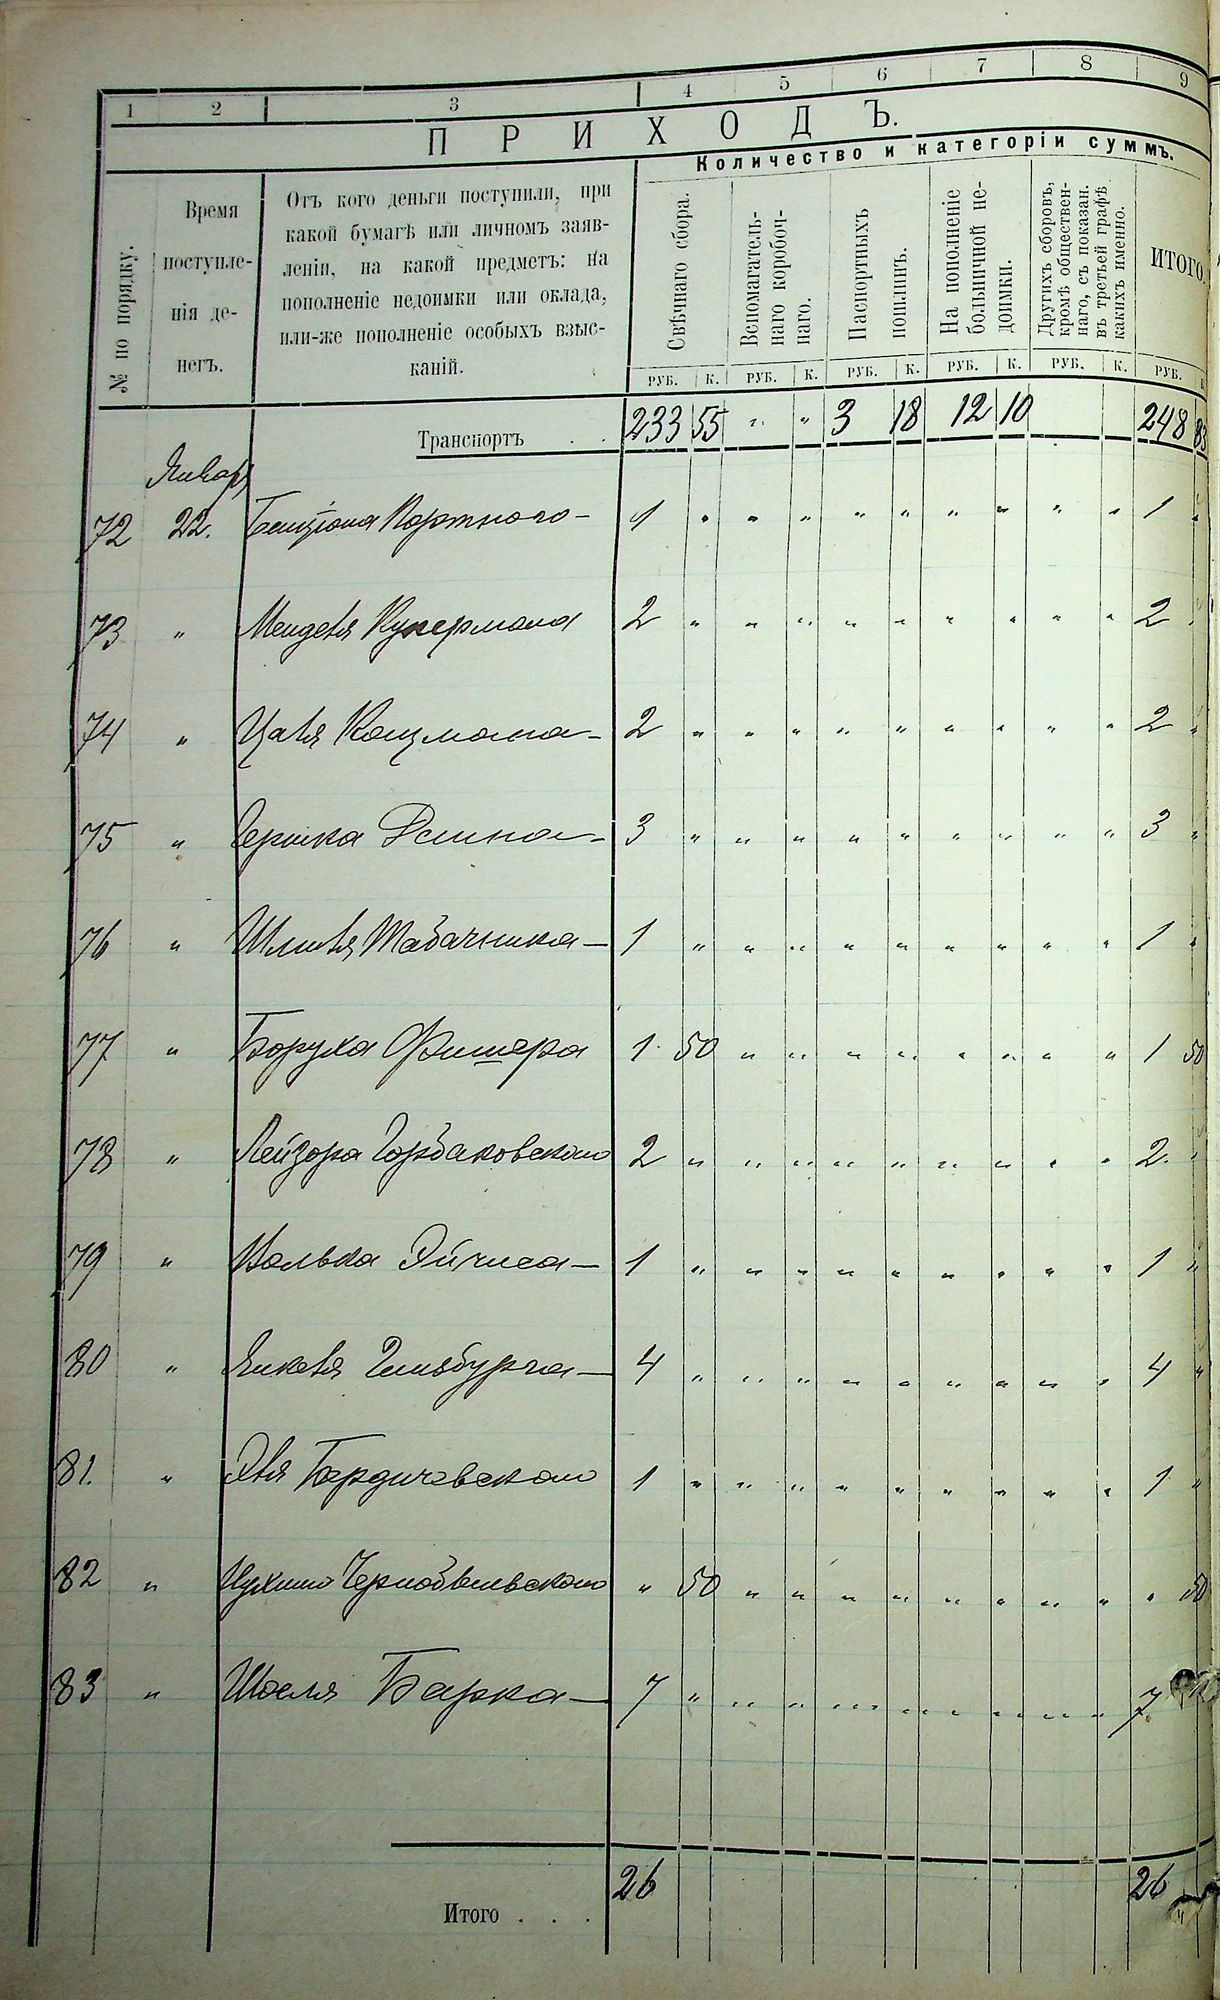 1 2 3 4 5 6 7 8 9
ПРИХОДЪ.
Количество и категоріи суммъ.
№ по порядку.
Время
поступле-
нія де-
негъ.
Отъ кого деньги поступили, при
какой бумагѣ или личномъ заяв-
леніи, на какой предметъ: на
пополненіе недоимки или оклада,
или-же пополненіе особыхъ взыс-
каній.
Свѣчнаго сбора.
Вспомагатель-
наго коробоч-
наго.
Паспортныхъ
пошлинъ.
На пополненіе
больничной не-
доимки.
Другихъ сборовъ,
кромѣ обществен-
наго, съ показан.
въ третьей графѣ
какихъ именно.
ИТОГО.
РУБ. К. РУБ. К. РУБ. К. РУБ. К. РУБ. К. РУБ. К
Транспортъ . . 233 55 " " 3 18 12 10 248 83
Январь
72 22. Бенціона Портного - 1 " " " " " " " " " 1 "
73 " Менделя Кукермана 2 " " " " " " " " " 2 "
74 " Цаля Кацмана - 2 " " " " " " " " " 2 "
75 " Гершка - 3 " " " " " " " " " 3 "
76 " Табачника - 1 " " " " " " " " " 1 "
77 " Боруха Фишера 1 50 " " " " " " " " 1 50
78 " Лейзора Горбаковского 2 " " " " " " " " " 2 "
79 " Волька - 1 " " " " " " " " " 1 "
80 " Янкеля Гинзбурга - 4 " " " " " " " " " 4 "
81. " Бердичевского 1 " " " " " " " " " 1 "
82 " Нухима Чернобыльского " 50 " " " " " " " " " 50
83 " Барка - 7 " " " " " " " " " 7
Итого . . . 26 26